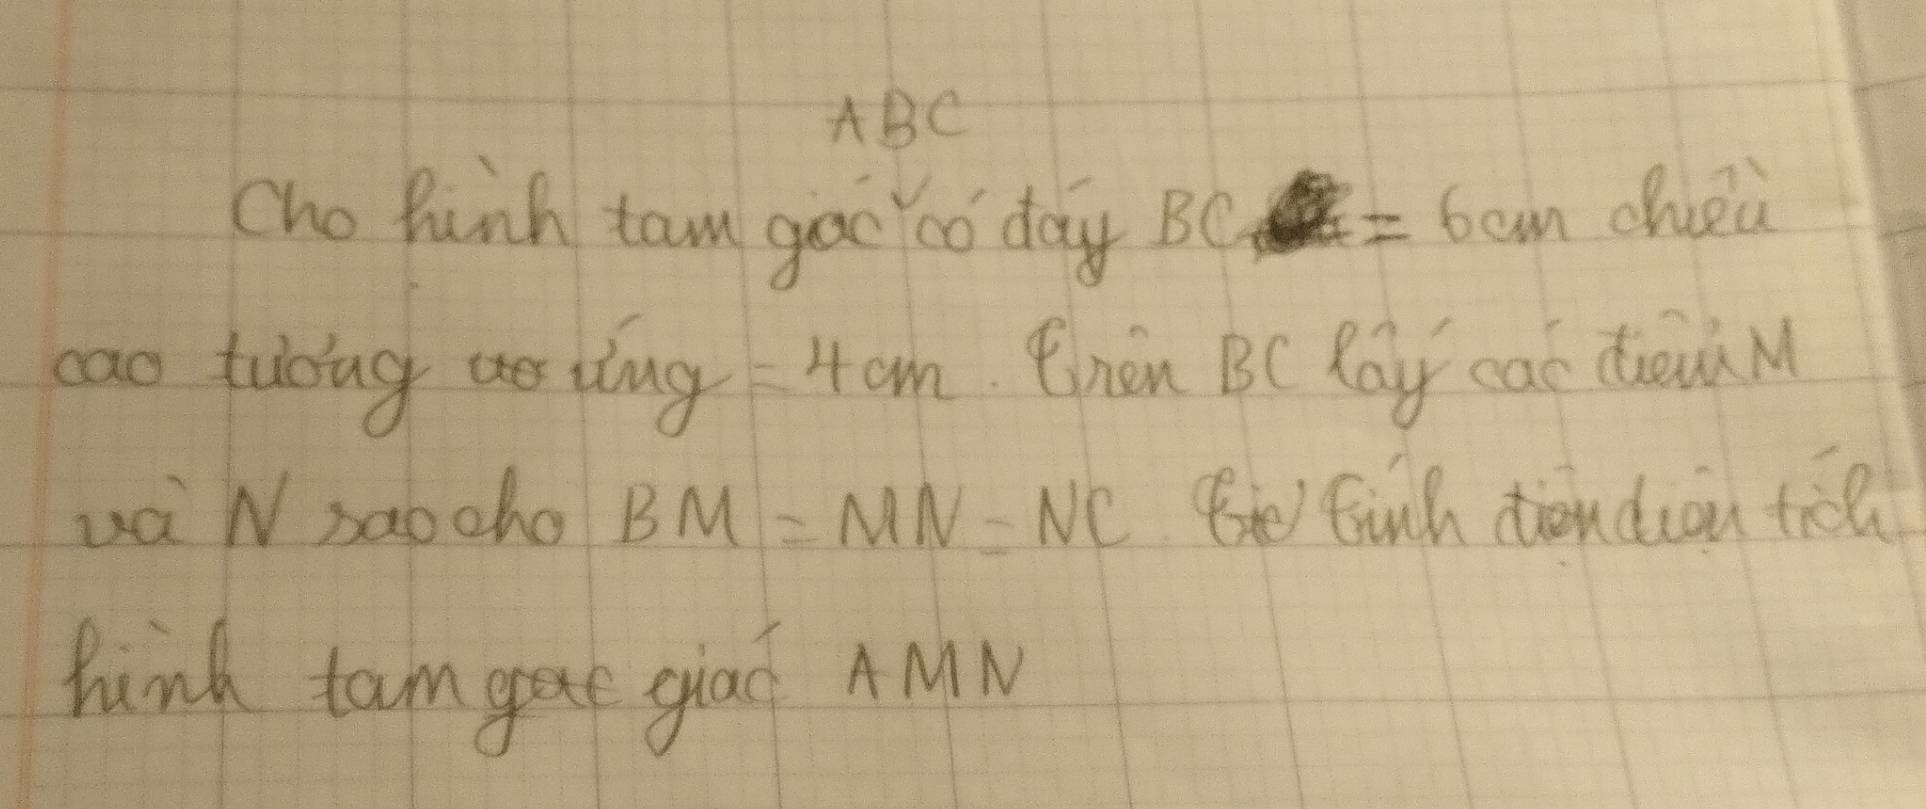 ABC
Cho hình tam giác có đáy BC = 6cm chiều
cao tương ứng = 4cm. Trên BC lấy các điểm M
và N sao cho BM = MN = NC. Tính diện tích
hình tam giác AMN